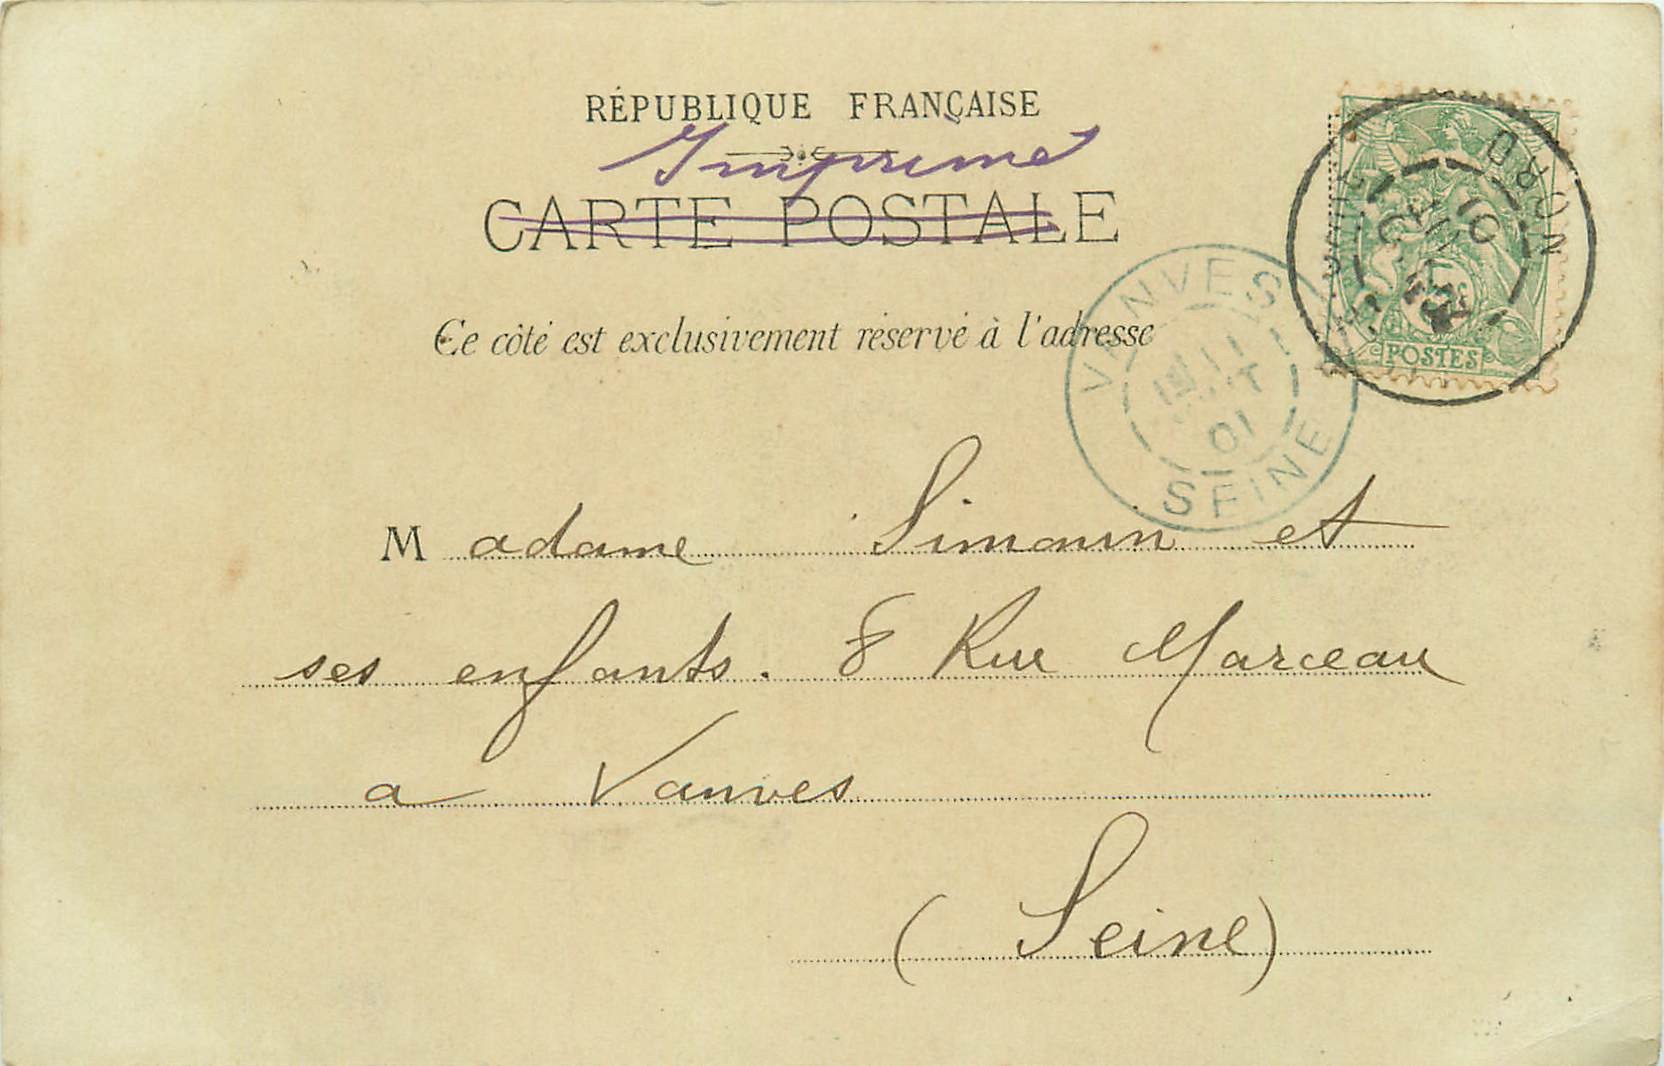 RÉPUBLIQUE FRANÇAISE
Imprimé
CARTE POSTALE
Ce côté est exclusivement réservé à l'adresse
POSTES
NORD
01
VANVES
11
01
SEINE
Madame Simonin et
ses enfants. 8 Rue Marceau
a Vanves
(Seine)